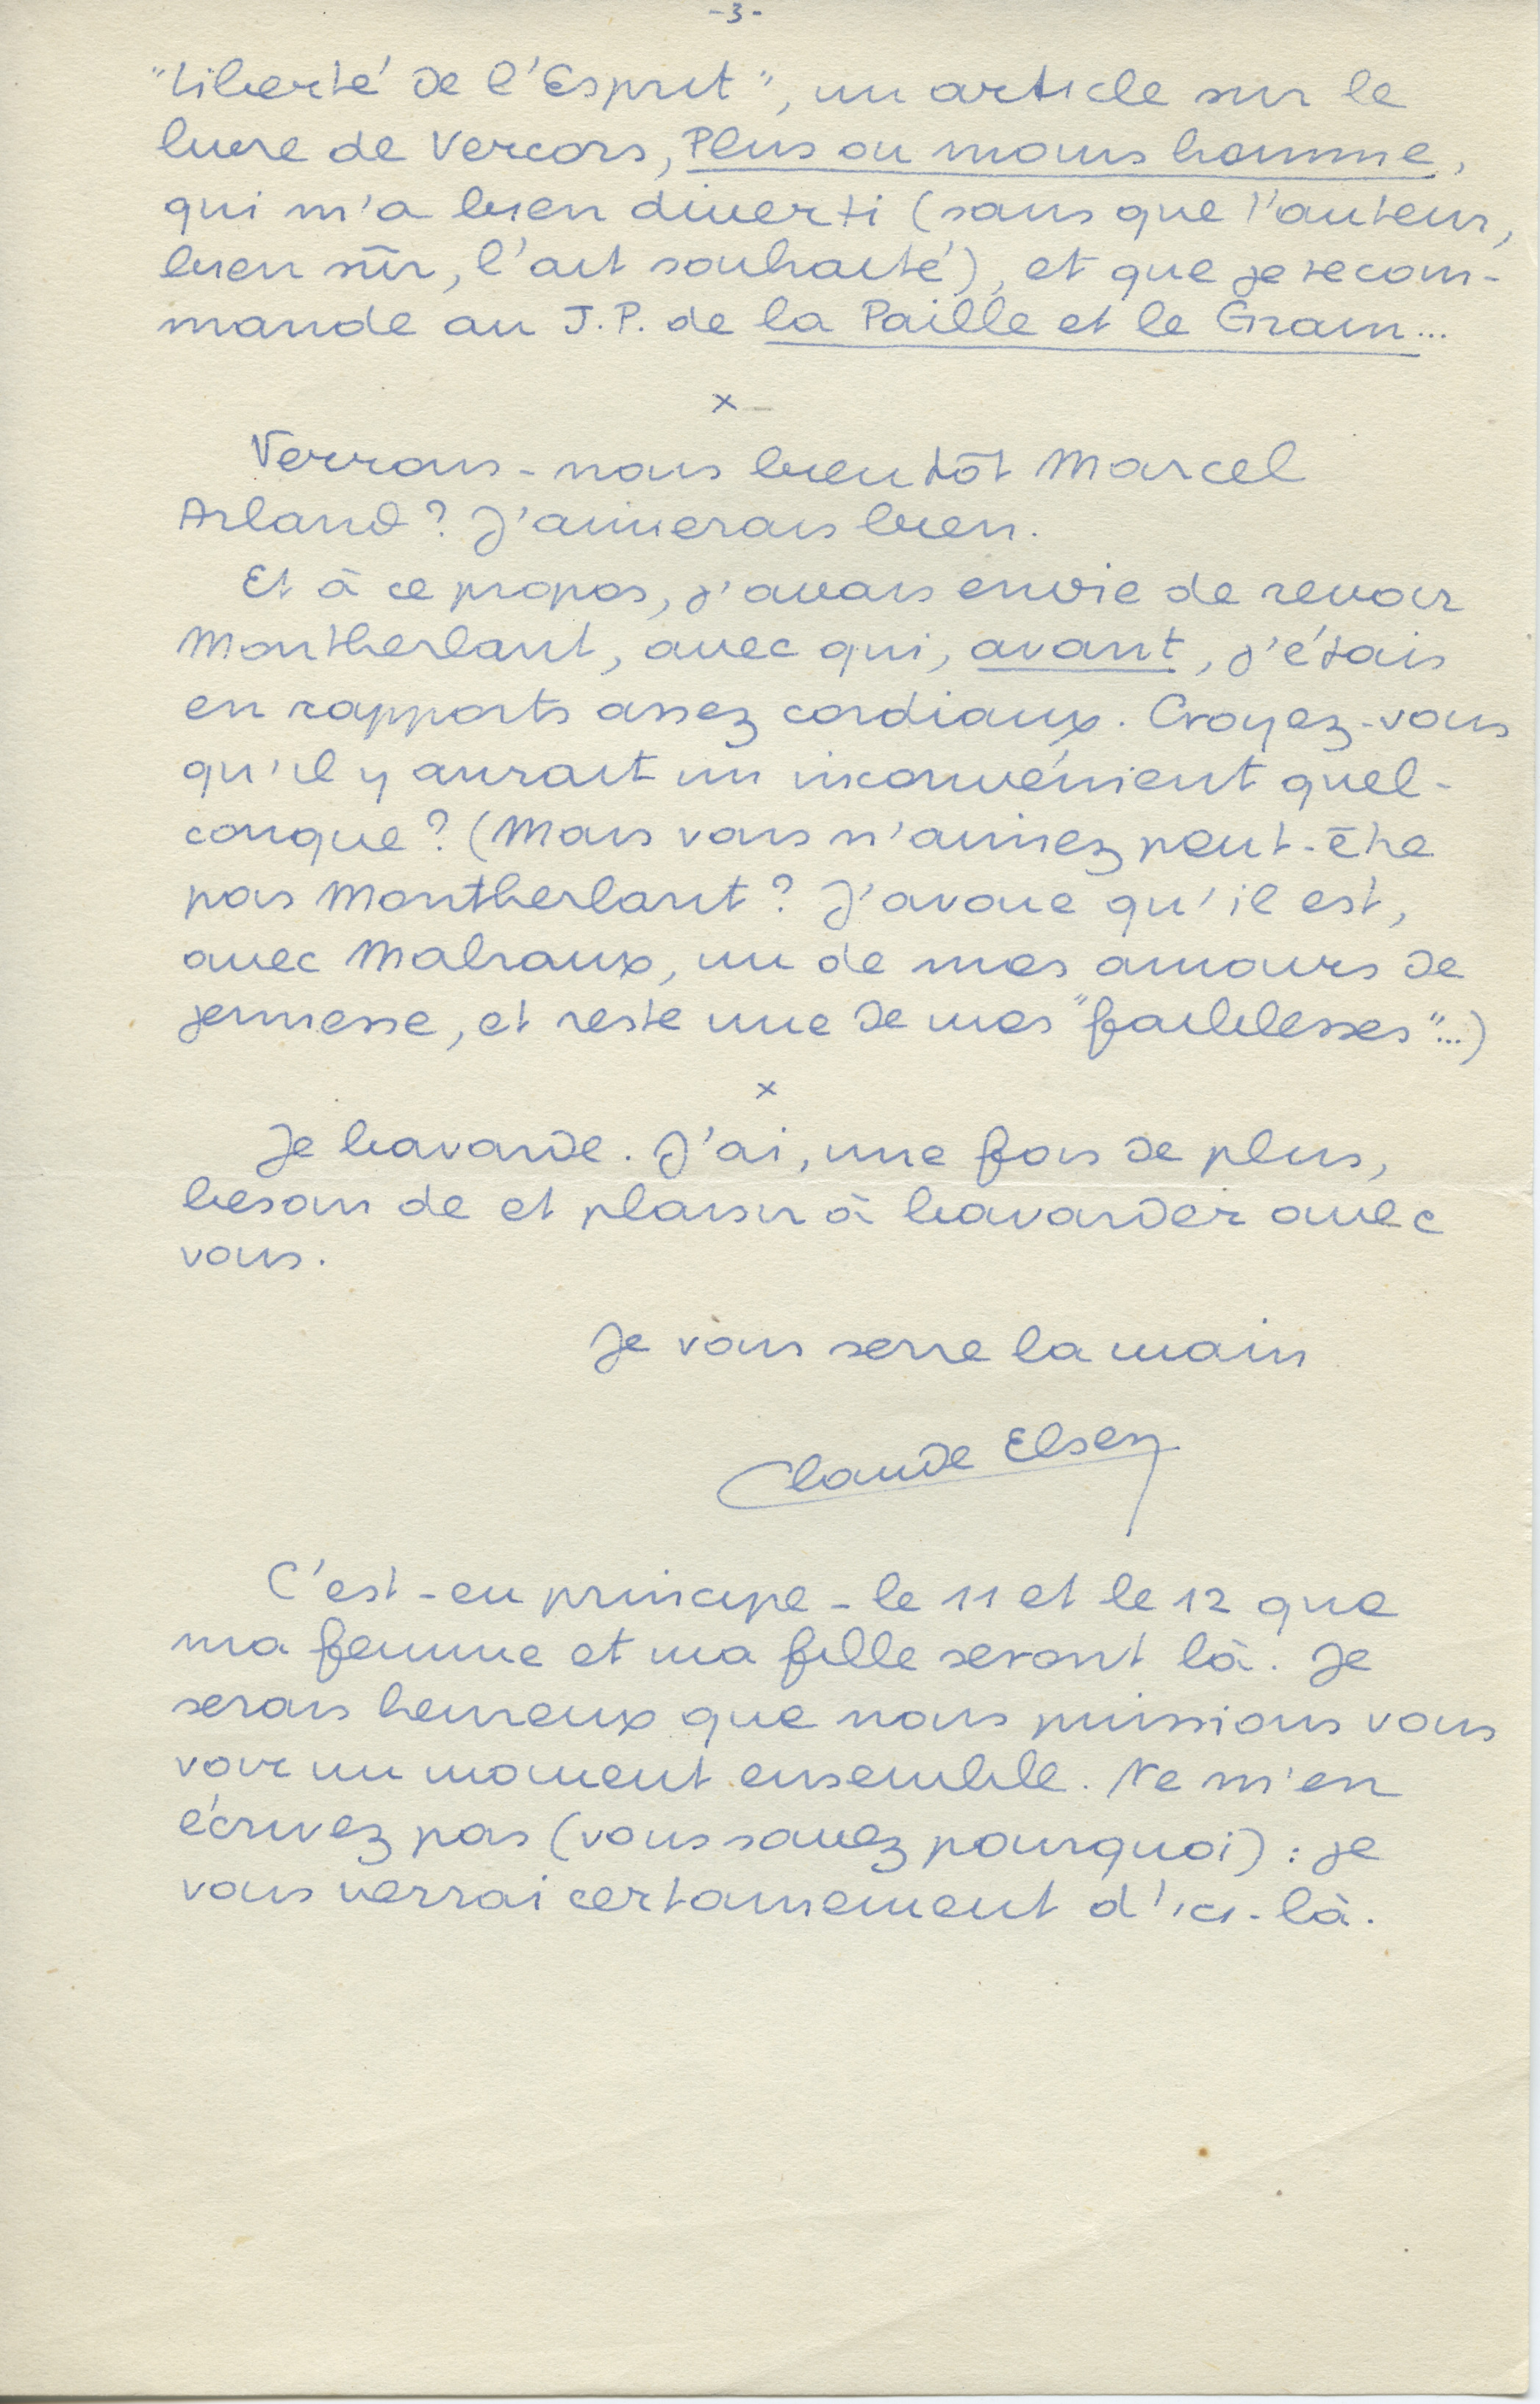 -3-
"Liberté de l'Esprit", un article sur le
livre de Vercors, Plus ou moins homme,
qui m'a bien diverti (sans que l'auteur,
bien sûr, l'ait souhaité), et que je recom-
mande au J.P. de la Paille et le Grain...
x
Verrons-nous bientôt Marcel
Arland? J'aimerais bien.
Et à ce propos, j'avais envie de revoir
Montherlant, avec qui, avant, j'étais
en rapports assez cordiaux. Croyez-vous
qu'il y aurait un inconvénient quel-
conque? (Mais vous n'aimez peut-être
pas Montherlant? J'avoue qu'il est,
avec Malraux, un de mes amours de
jeunesse, et reste une de mes "faiblesses"...)
x
Je bavarde. J'ai, une fois de plus,
besoin de et plaisir à bavarder avec
vous.
Je vous serre la main
Claude Elsen
C'est - en principe - le 11 et le 12 que
ma femme et ma fille seront là. Je
serais heureux que nous puissions vous
voir un moment ensemble. Ne m'en
écrivez pas (vous savez pourquoi) : je
vous verrai certainement d'ici-là.